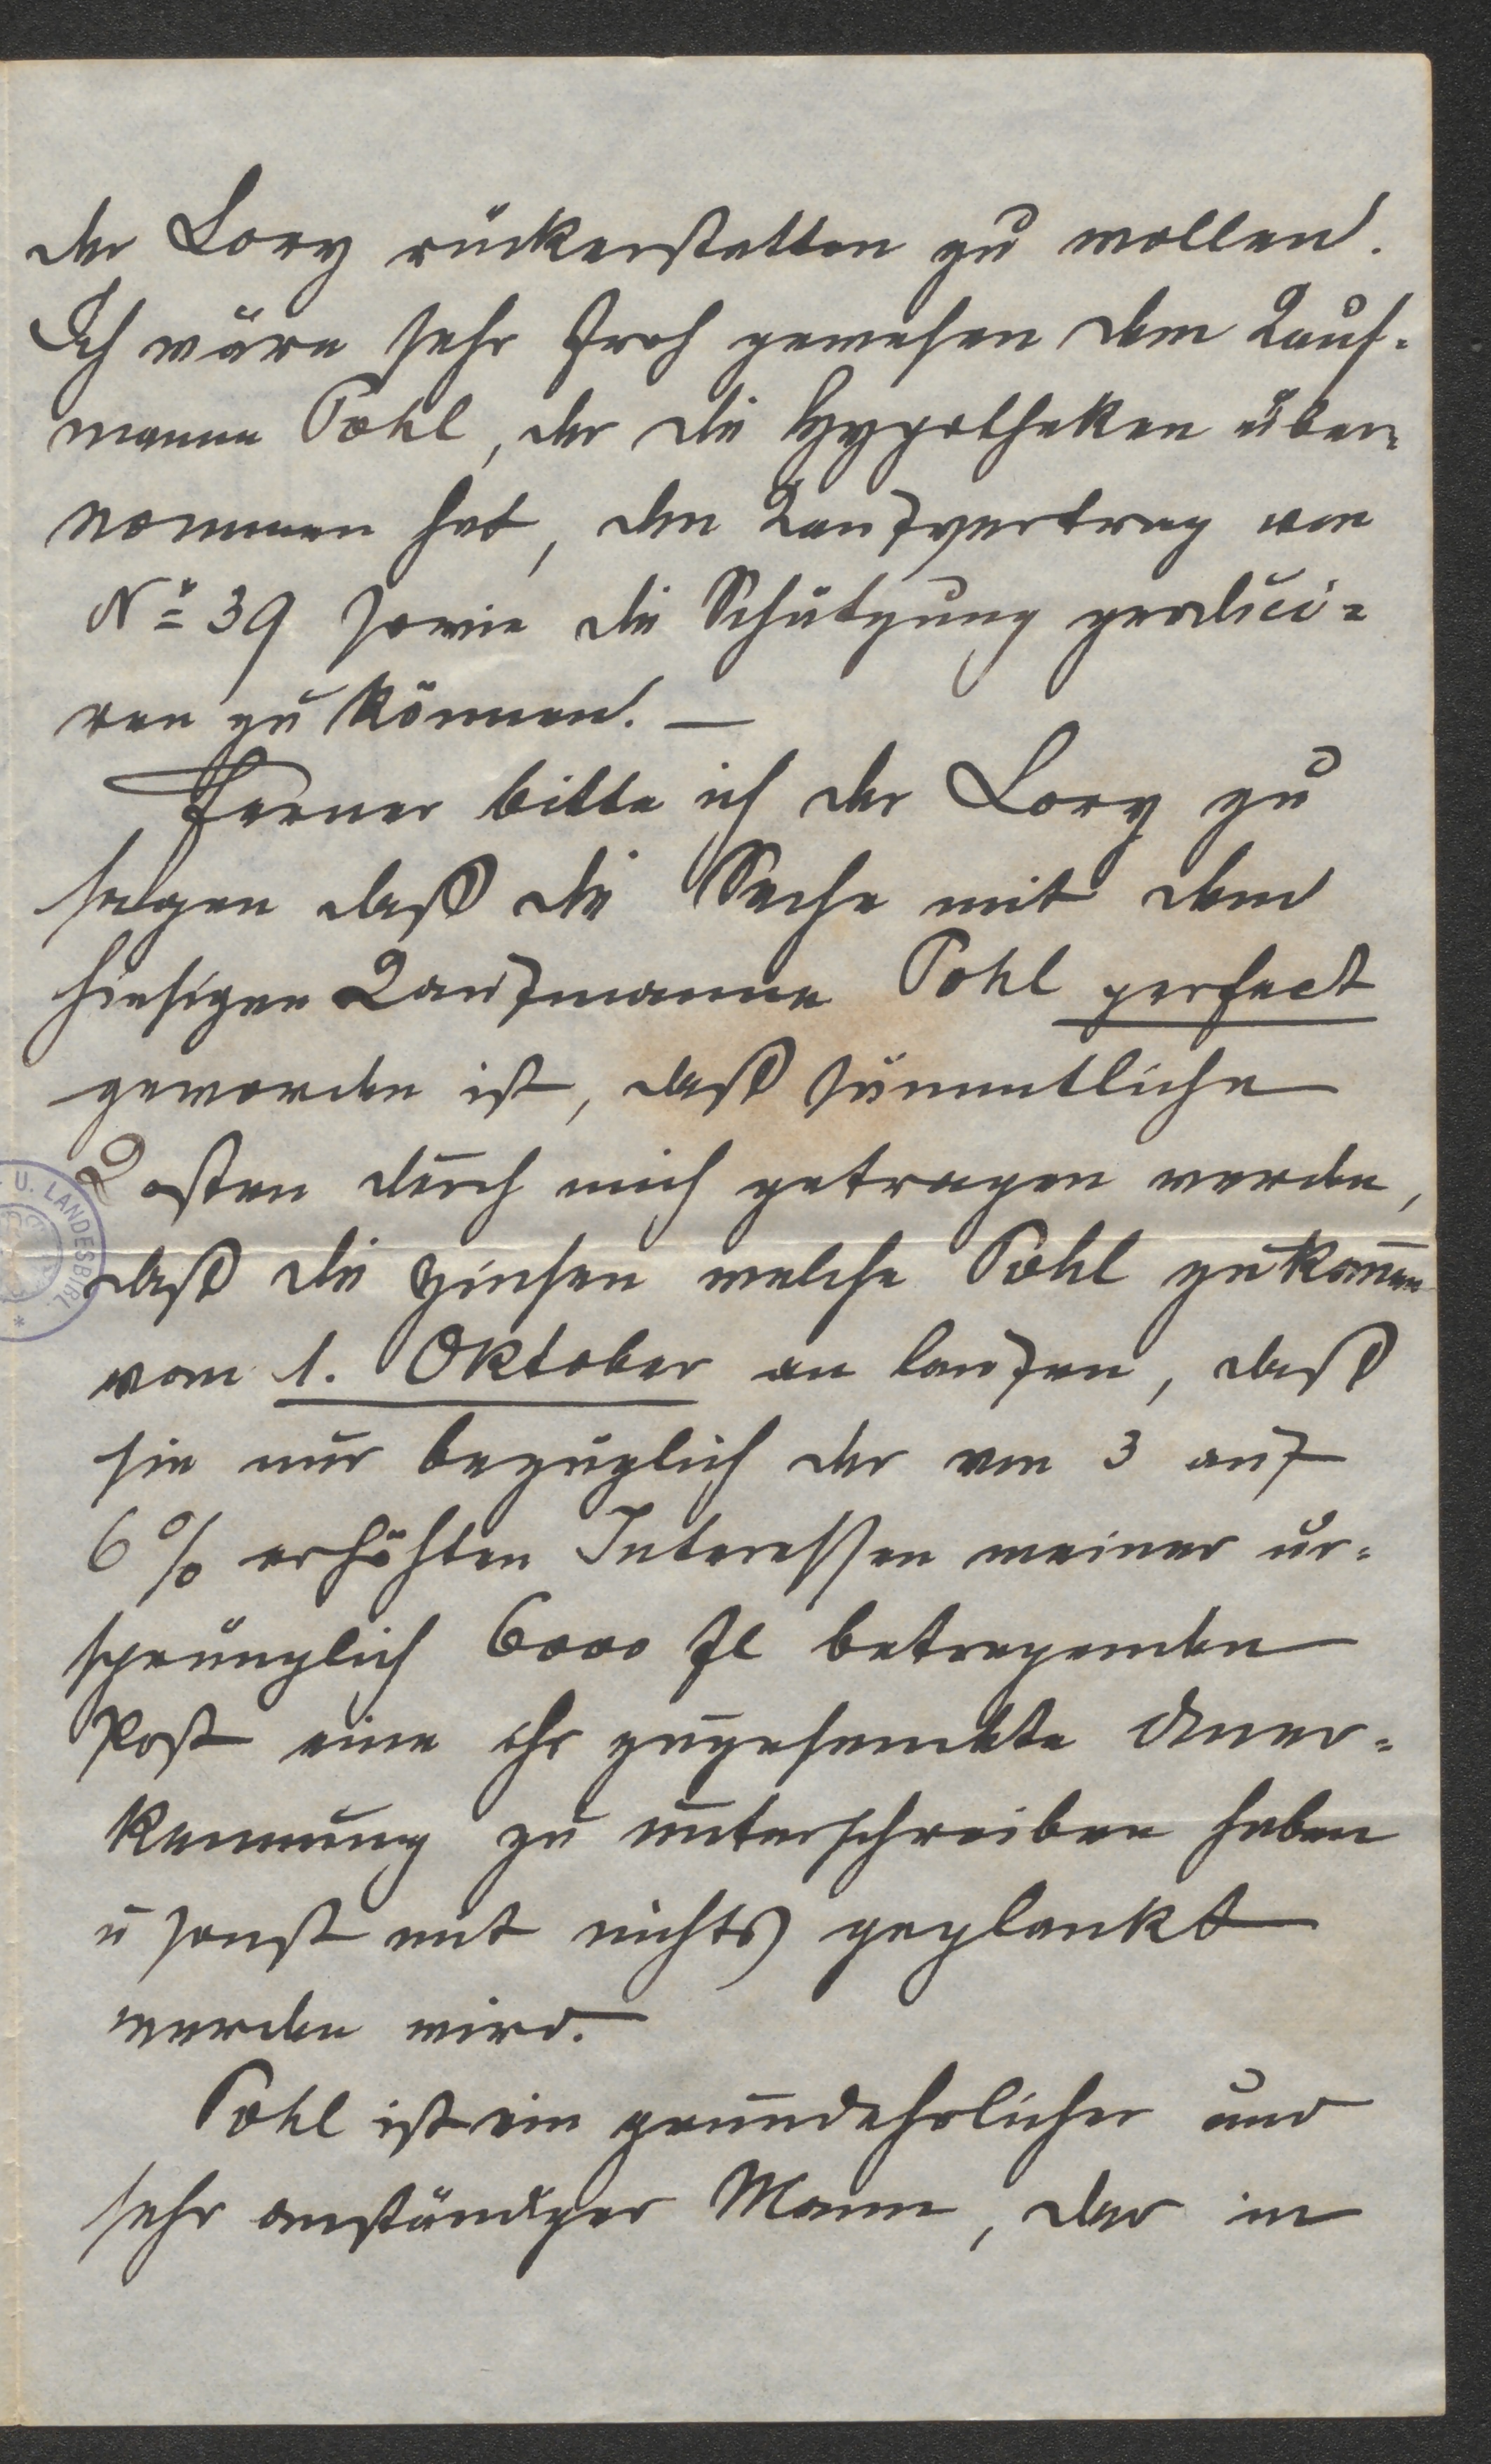 der Lory rückerstatten zu wollen.
Ich wäre sehr froh gewesen dem Kauf-
manne Pohl, der die Hypotheken über-
nommen hat, den Kaufvertrag von
No 39 sowie die Schätzung produci-
ren zu können. —
Ferner bitte ich der Lory zu
sagen daß die Sache mit dem
hiesigen Kaufmanne Pohl perfect
geworden ist, daß sämmtliche
Kosten durch mich getragen werden,
daß die Zinsen welche Pohl zukom̅en
vom 1. Oktober an laufen, daß
sie nur bezüglich der von 3 auf
6% erhöhten Interessen meiner ur-
sprünglich 6000 fl betragenden
Post eine ihr zugesendete Aner-
kennung zu unterschreiben haben
u sonst mit nichts geplankt
werden wird.
Pohl ist ein grundehrlicher und
sehr anständiger Mann, der in
U. LANDESBIBL.